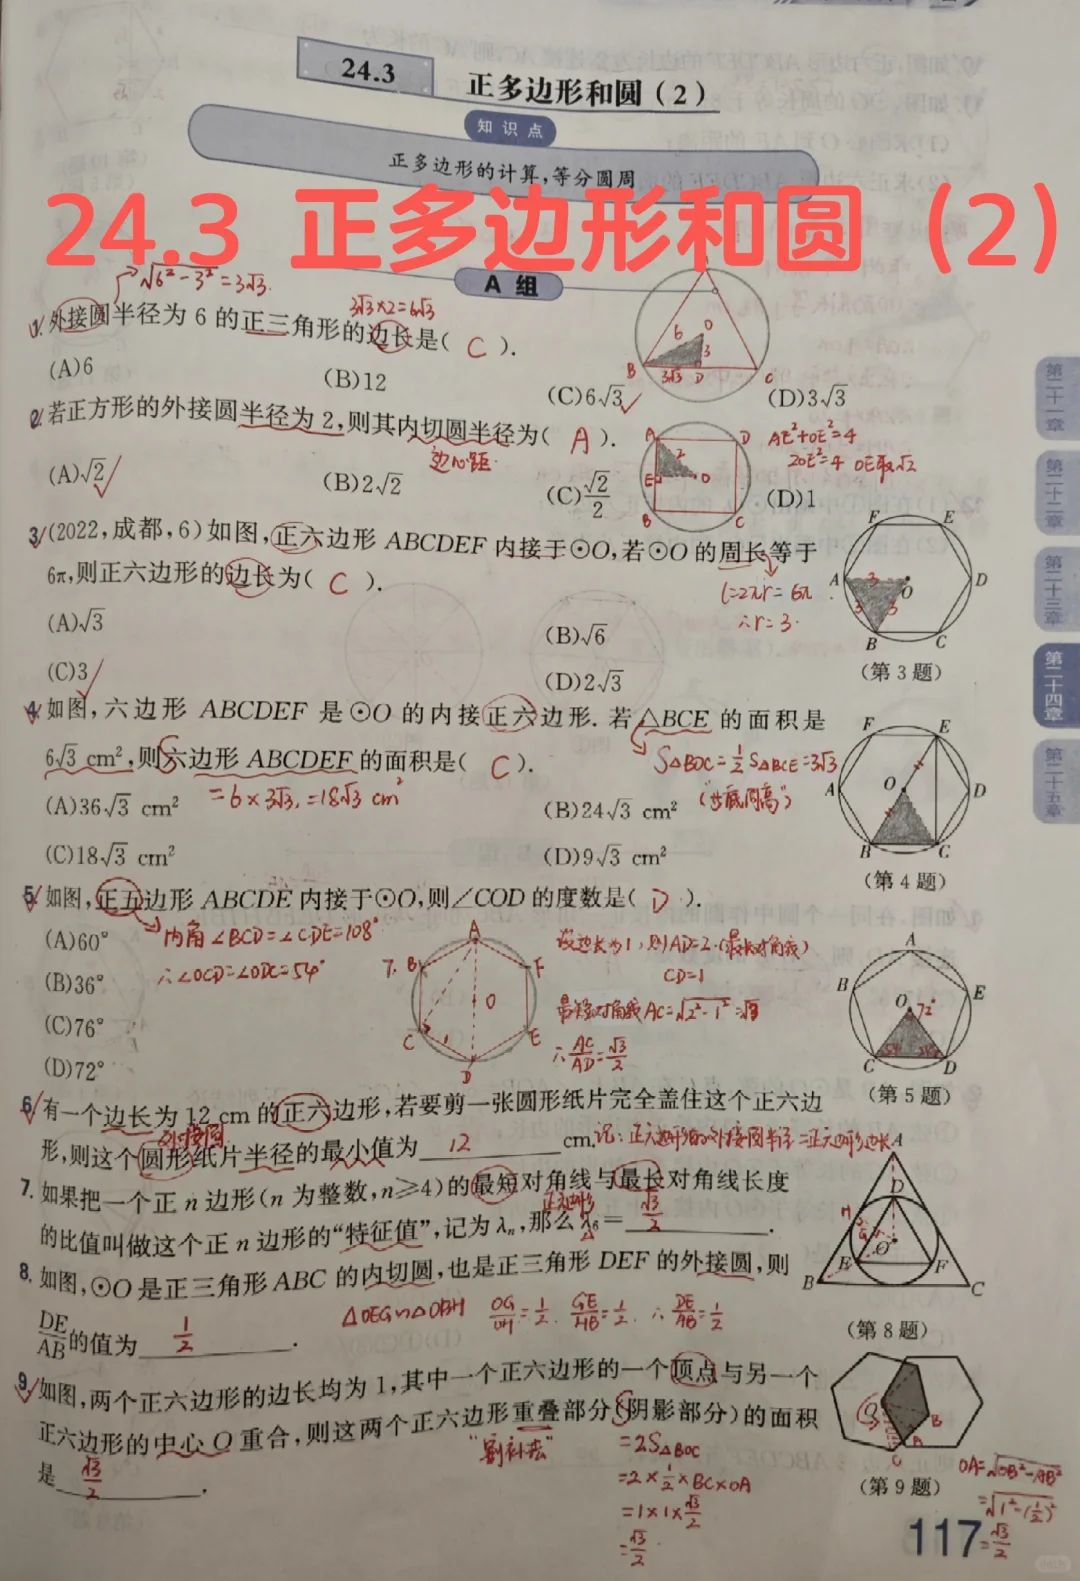 24.3 正多边形和圆(2)
知识点
正多边形的计算,等分圆周
24.3 正多边形和圆(2)
A 组
√6²-3²=3√3.
3√3×2=6√3
1. 外接圆半径为 6 的正三角形的边长是( C ).
(A)6 (B)12 (C)6√3 (D)3√3
6 O 3 B 3√3 D C
2. 若正方形的外接圆半径为 2,则其内切圆半径为( A ).
边心距.
(A)√2 (B)2√2 (C)√2/2 (D)1
A D 2 E O B C
AE²+OE²=4
2OE²=4 OE取√2
3. (2022,成都,6)如图,正六边形 ABCDEF 内接于⊙O,若⊙O 的周长等于
6π,则正六边形的边长为( C ).
l=2πr=6π
∴r=3.
(A)√3 (B)√6
(C)3 (D)2√3
F E A 3 O D 3 3 B C
(第 3 题)
4. 如图,六边形 ABCDEF 是⊙O 的内接正六边形. 若△BCE 的面积是
6√3 cm²,则六边形 ABCDEF 的面积是( C ).
S△BOC=1/2 S△BCE=3√3
=6×3√3.=18√3 cm²
(A)36√3 cm² (B)24√3 cm²
(C)18√3 cm² (D)9√3 cm²
F E A O D B C
(第 4 题)
5. 如图,正五边形 ABCDE 内接于⊙O,则∠COD 的度数是( D ).
内角∠BCD=∠CDE=108°
∴∠OCD=∠ODC=54°
(A)60°
(B)36°
(C)76°
(D)72°
7. A B F O C E D
设边长为1,则AD=2.(最长对角线)
CD=1
最短对角线AC=√2²-1²=√3
∴AC/AD=√3/2
A B E O 72° C D
(第 5 题)
6. 有一个边长为 12 cm 的正六边形,若要剪一张圆形纸片完全盖住这个正六边
外接圆
形,则这个圆形纸片半径的最小值为 12 cm.
记:正六边形的外接圆半径=正六边形边长
7. 如果把一个正 n 边形(n 为整数,n≥4)的最短对角线与最长对角线长度
正六边形
的比值叫做这个正 n 边形的“特征值”,记为 λₙ,那么 λ₆= √3/2 .
8. 如图,⊙O 是正三角形 ABC 的内切圆,也是正三角形 DEF 的外接圆,则
DE/AB 的值为 1/2 .
△OEG∽△OBH OG/OH=1/2. GE/HB=1/2. ∴DE/AB=1/2
A D H G O B E F C
(第 8 题)
9. 如图,两个正六边形的边长均为 1,其中一个正六边形的一个顶点与另一个
正六边形的中心 O 重合,则这两个正六边形重叠部分(阴影部分)的面积
“割补法”
是 √3/2 .
=2S△BOC
=2×1/2×BC×OA
=1×1×√3/2
=√3/2
O B A C
(第 9 题)
OA=√OB²-AB²
=√1²-(1/2)²
=√3/2
117
第二十一章
第二十二章
第二十三章
第二十四章
第二十五章